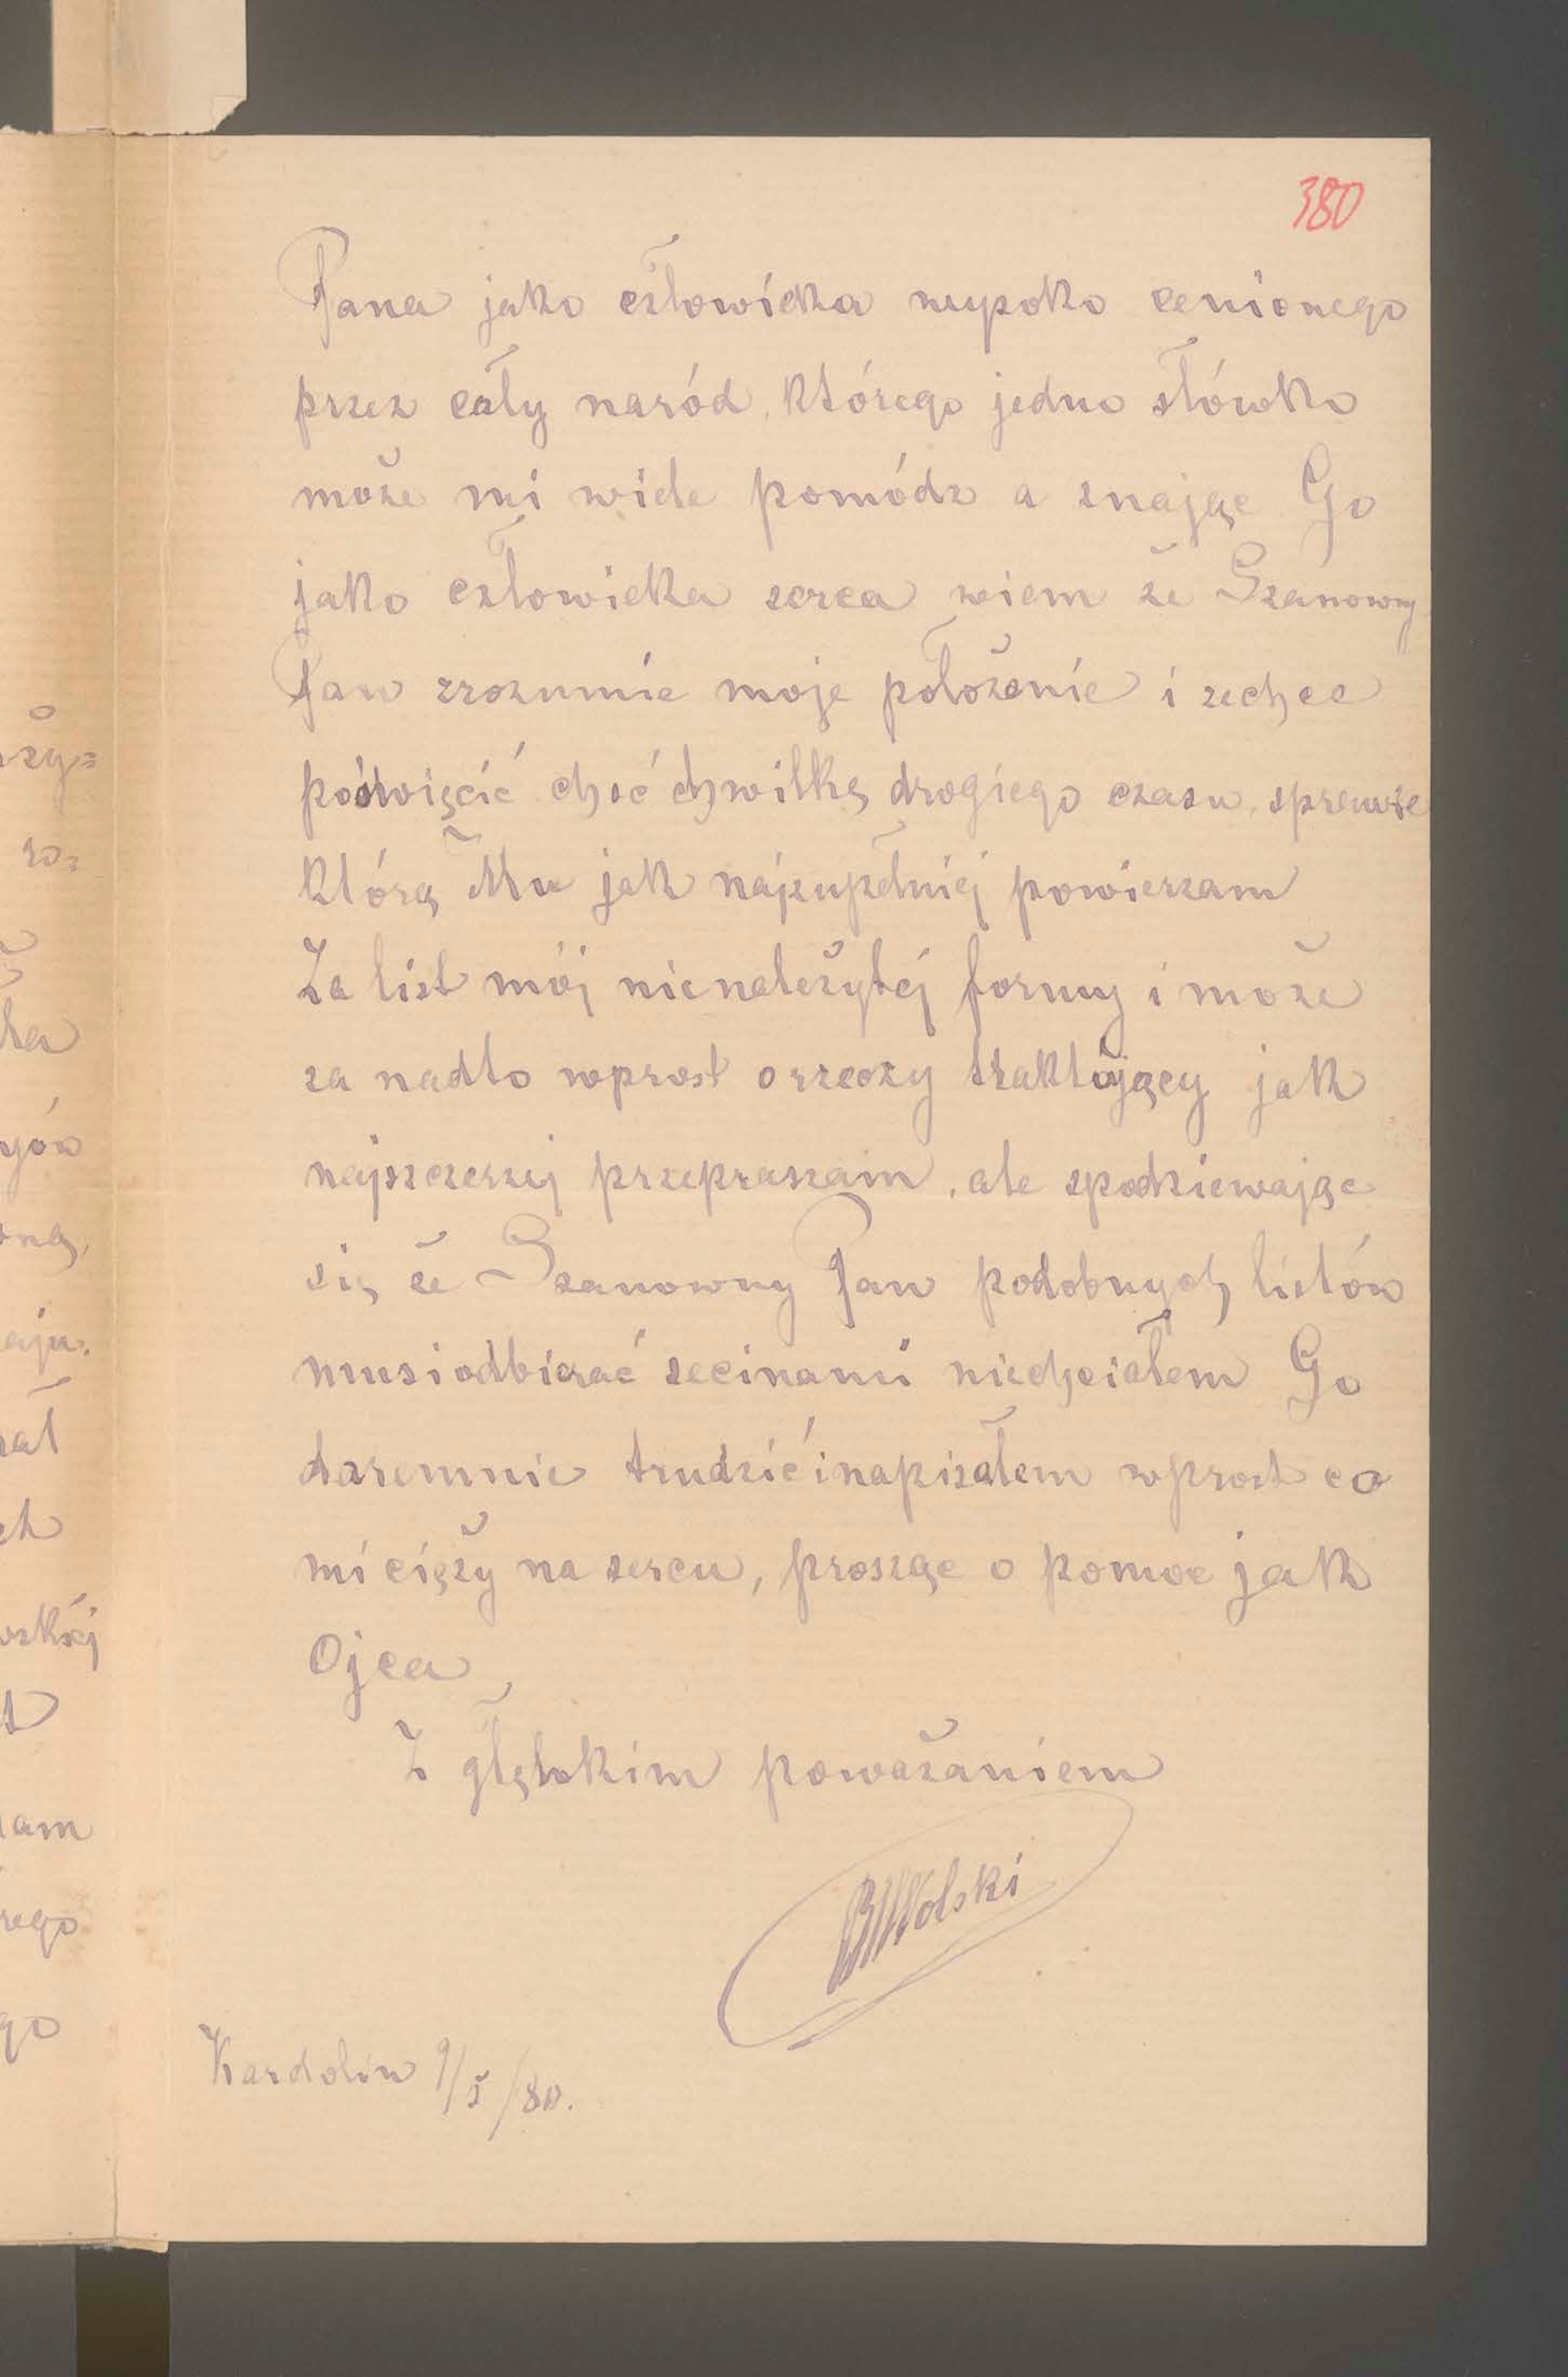 380
Pana jako człowieka wysoko cenionego
przez cały naród, którego jedno słówko
może mi wiele pomódz a znając Go
jako człowieka serca wiem że Szanowny
Pan zrozumie moje położenie i zechce
poświęcić choć chwilkę drogiego czasu, sprawie
którą Mu jak najzupełniej powierzam
Za list mój nienależytej formy i może
za nadto wprost o rzeczy traktujący jak
najszczerzej przepraszam, ale spodziewając
się że Szanowny Pan podobnych listów
musi odbierać secinami niechciałem Go
daremnie trudzić i napisałem wprost co
mi cięży na sercu, prosząc o pomoc jak
Ojca
Z głębokim poważaniem
BWolski
Kardolin 9/5/80.